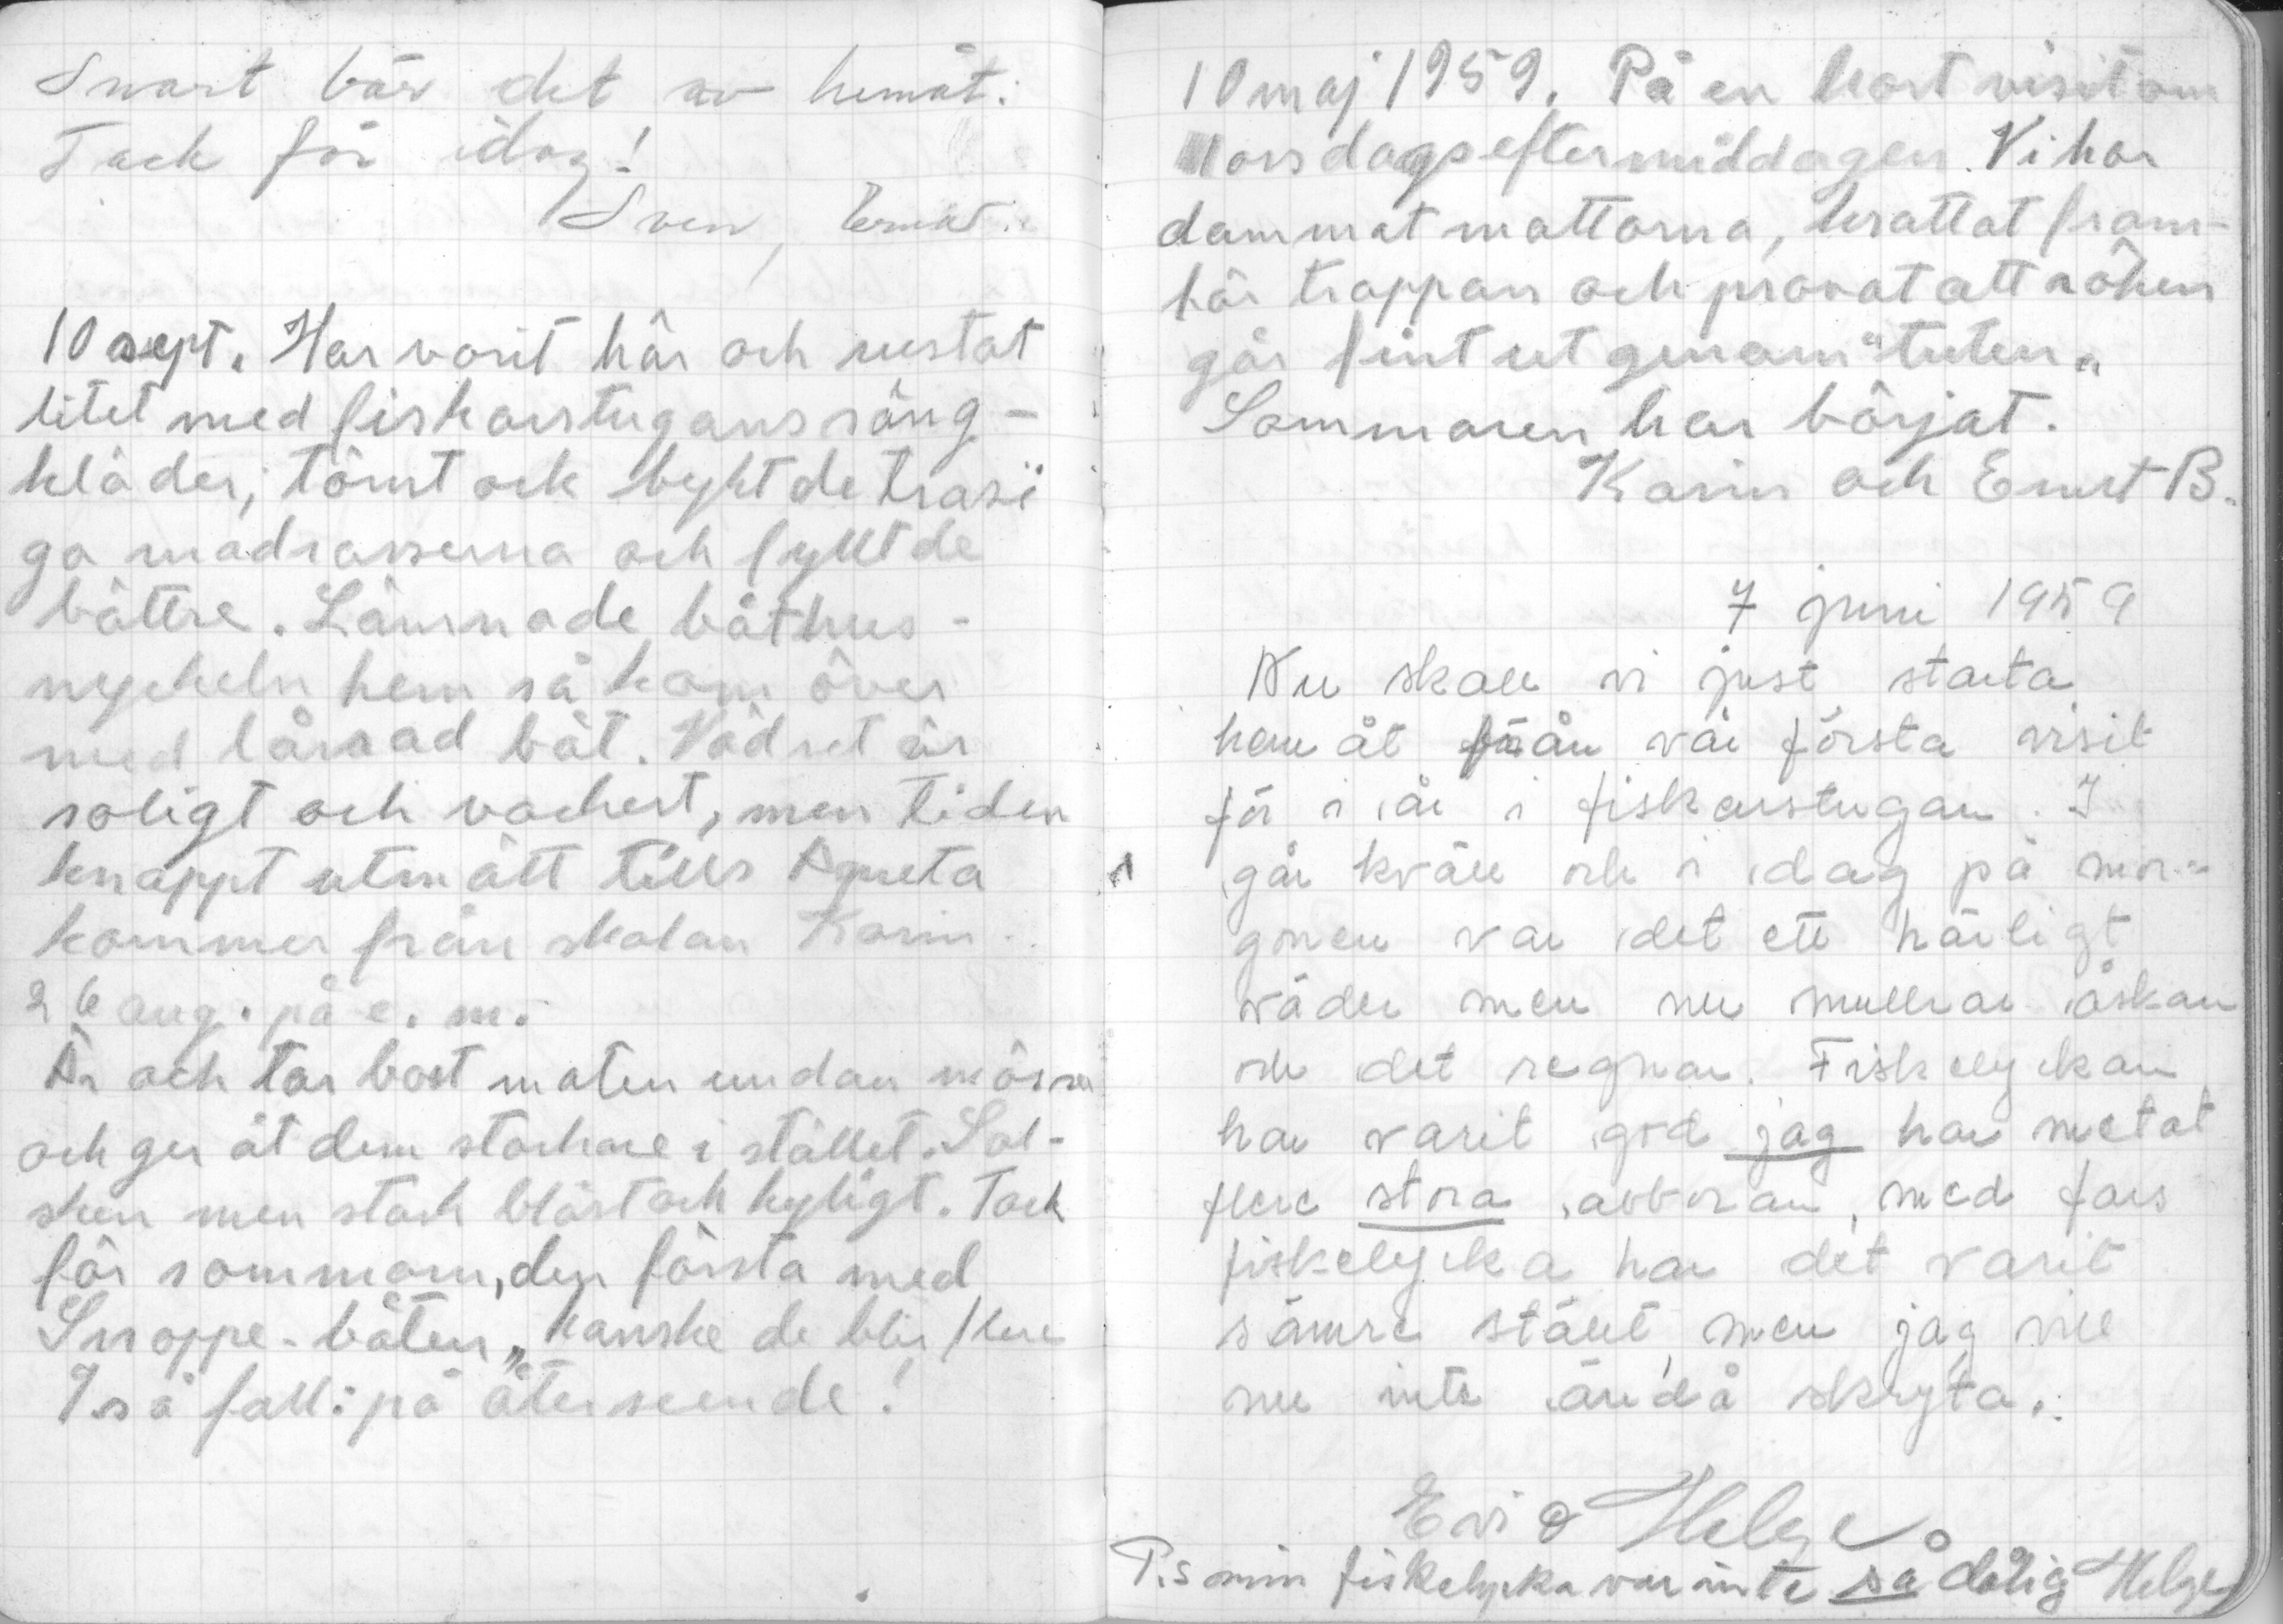 Snart bär det av hemåt.
Tack för idag!
Sven, Ernst.
10 sept. Har varit här och rustat
litet med fiskarstugans säng-
kläder, tömt och bykt de trasi
ga madrasserna och fyllt de
bättre. Lämnade båthus-
nyckeln hem så kom över
med lånad båt. Vädret är
soligt och vackert, men tiden
knappt utmätt tills Agneta
kommer från skolan Karin.
26 aug. på e. m.
Är och tar bort maten undan mössen
och ger åt dem starkare i stället. Sol-
sken men stark blåst och kyligt. Tack
för sommarn, den första med
Snoppe-båten, kanske de blir flere
I så fall: på återseende!
10 maj 1959. På en kort visit om
Morsdagseftermiddagen. Vi har
dammat mattorna, krattat fram-
för trappan och provat att röken
går fint ut genom "tuten"
Sommaren har börjat.
Karin och Ernst B.
7 juni 1959
Nu skall vi just starta
hemåt från vår första visit
för i år i fiskarstugan. I
går kväll och i dag på mor-
gonen var det ett härligt
väder men nu mullrar åskan
och det regnar. Fiskelyckan
har varit god jag har metat
flere stora abborrar, med fars
fiskelycka har det varit
sämre ställt, men jag vill
nu inte ändå skryta.
Evi & Helge
P.s min fiskelycka var inte så dålig Helge